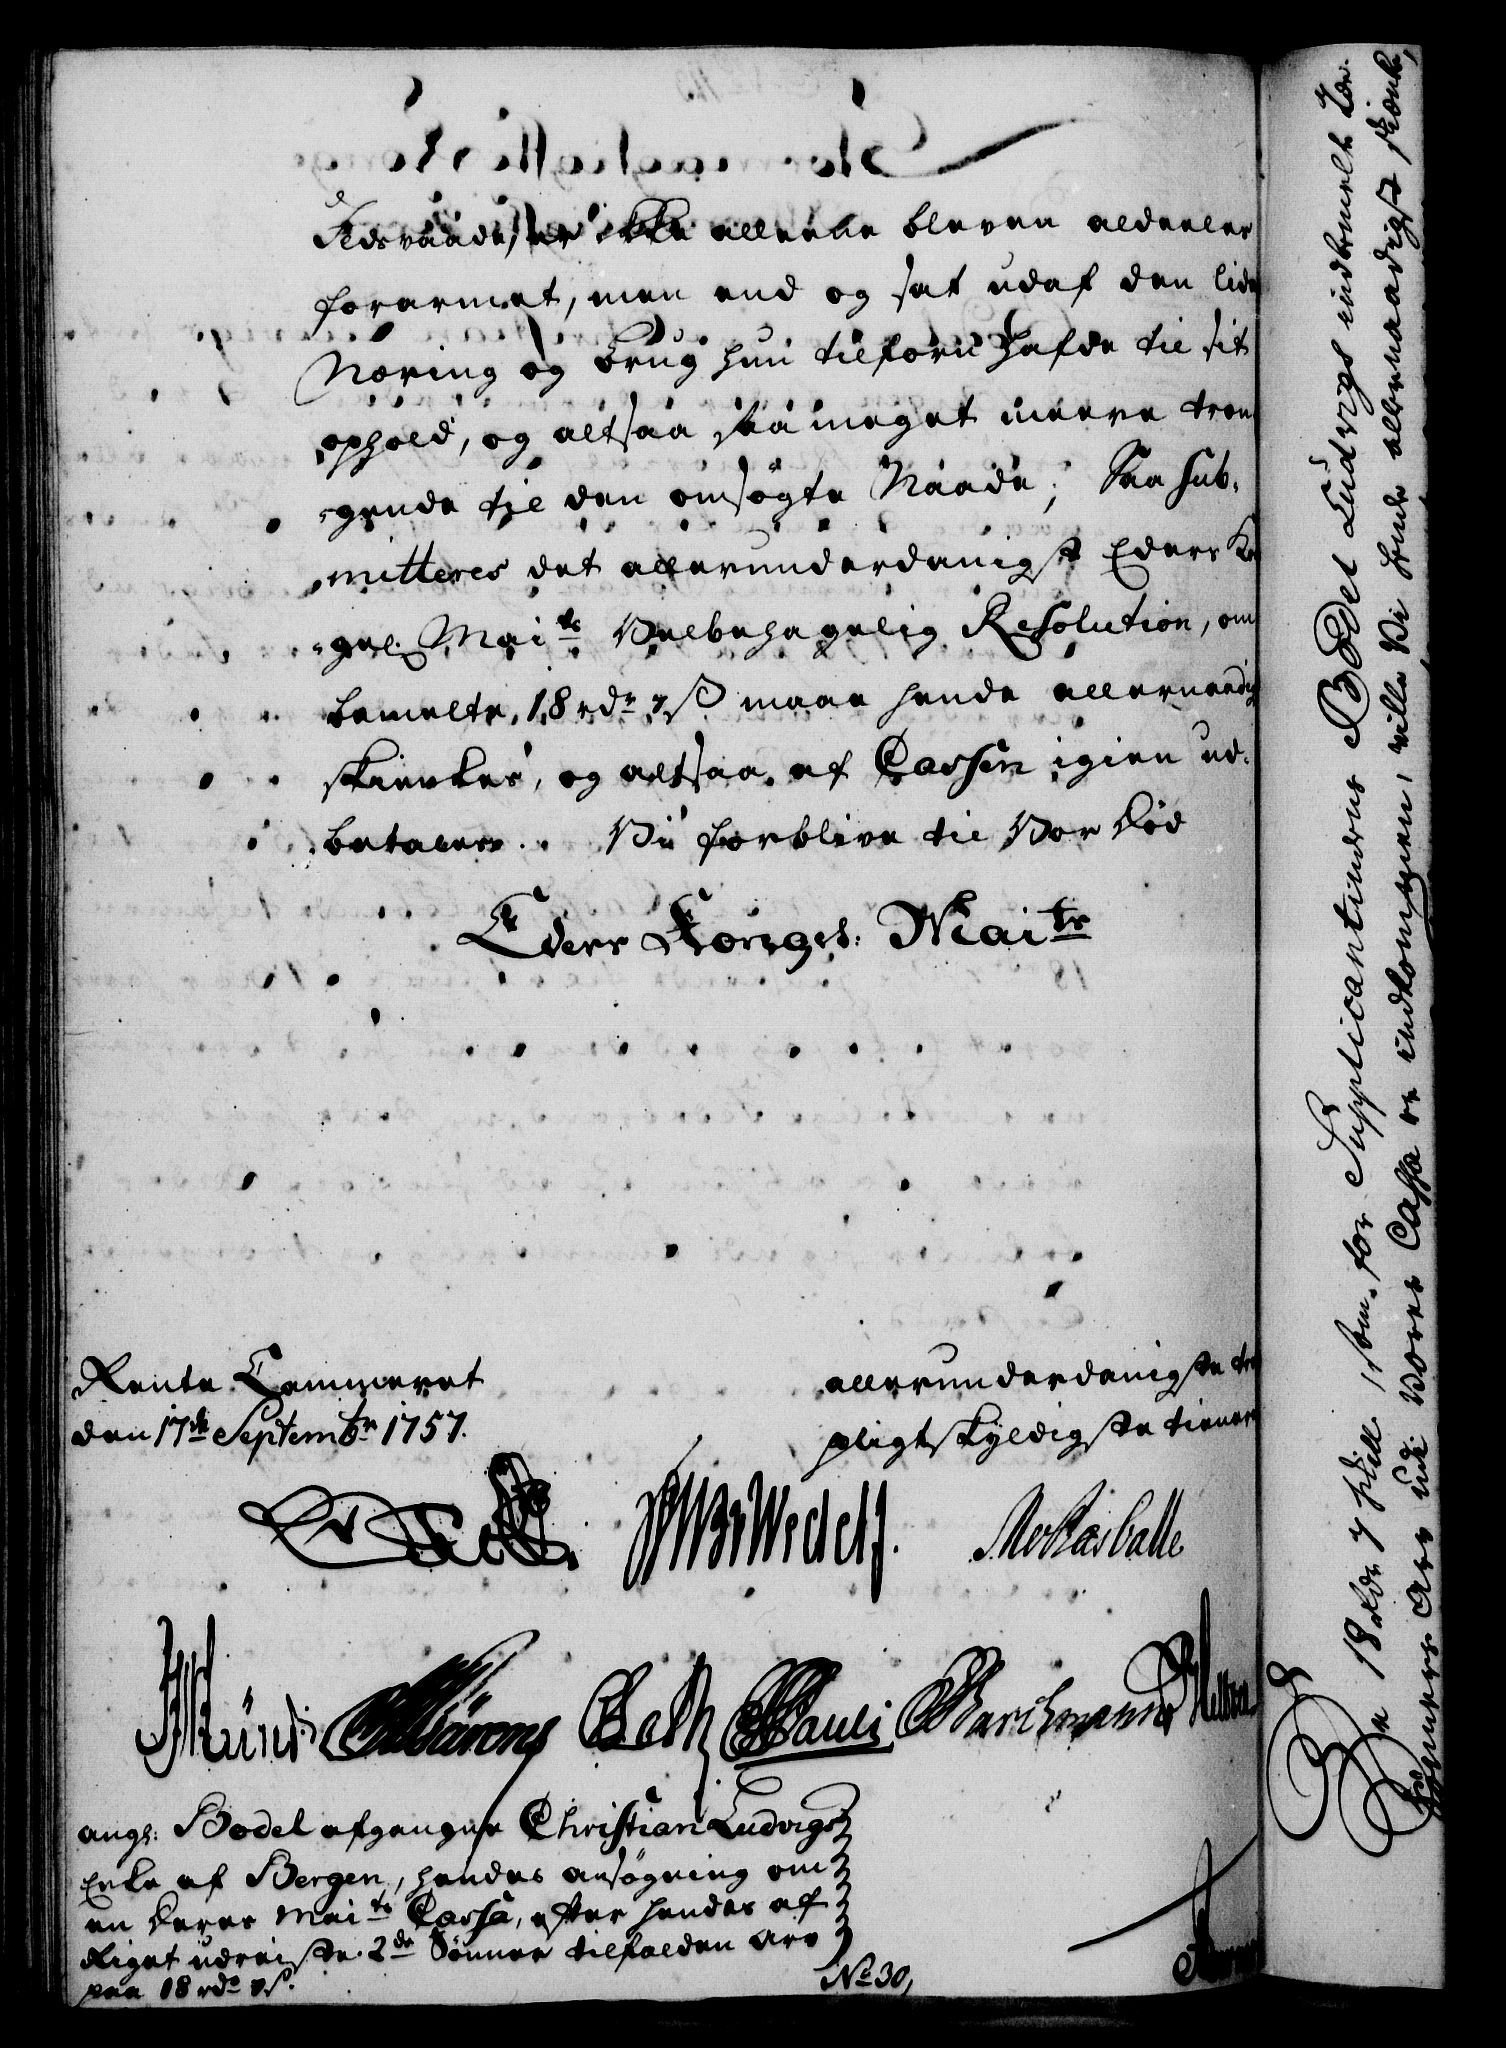 Ildsvaade, er ikke alleene bleven aldeeles
forarmet, men end og sat udaf den lide
Næring og Brug hun tilforn hafde til sit
ophold, og altsaa saa meget meere tran-
gende til den omsøgte Naade; Saa sub-
mitteres det allerunderdanigst Eders Kon
gel. Maits Velbehagelig Resolution, om
bemelte 18 rdr 7 ß maae hende allernaadig
skienkes, og altsaa af Cassen igien ud-
betales. Vii forblive til Vor Død
Eders Kongel: Maits
Rente Cammeret
den 17de Septembr 1757.
allerunderdanigste tro
pligtskyldigste tienere
Wedel
angl: Bodel afgangne Christian Ludvigs
Enke af Bergen, hendes ansøgning om
en deres Maits Cassa, efter hendes af
Riget udreiste 2de Sønner tilfalden Arv
paa 18 rdr 7 ß.
No 30,
De 18 rdr 7 skill som for Supplicantindens Bodel Ludvigs indbemelt
Sønners Arv udi Vores Cassa er indkommen, ville Vi hende allernaadigst skienke,